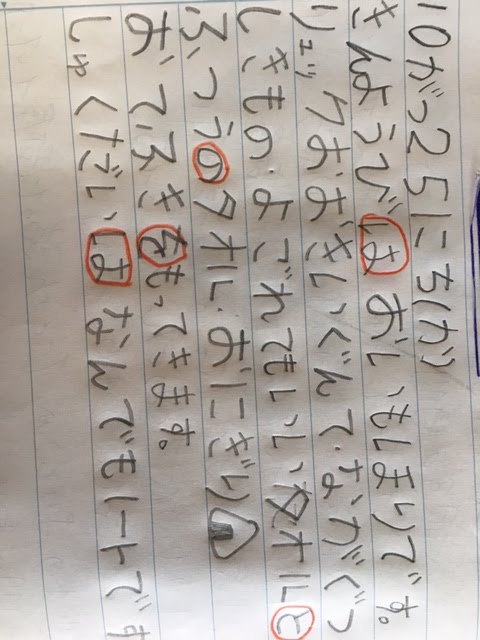 10がつ25にち(か)
きんようびは おいもほりです。
リュックおおきいぐんて、ながぐつ
しきもの、よごれてもいいタオルと
ふつうのタオル、おにぎり
おてふきをもってきます。
しゅくだいは なんでもノートです